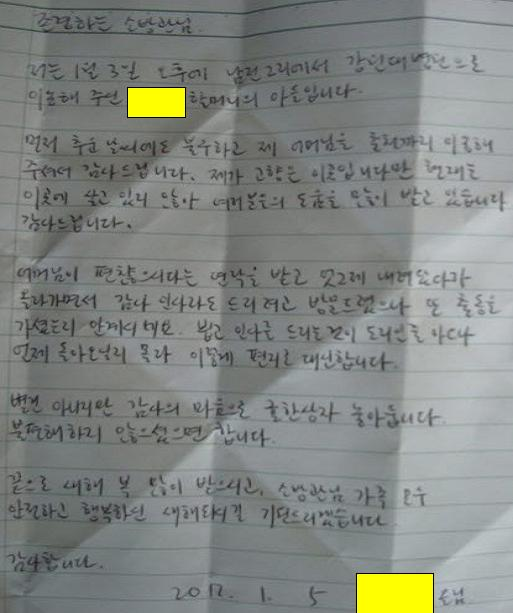 존경하는 소방관님.
저는 1월 3일 오후에 남전그리에서 강단대병원으로
이송해 주신 할머니의 아들입니다.
먼저 추운 날씨에도 불구하고 제 어머님을 훌륭하게 이송해
주셔서 감사드립니다. 제가 고향은 이곳입니다만 현재는
이곳에 살고 있지 않아 여러분들의 도움을 많이 받고 있습니다
감사드립니다.
어머님이 편찮으시다는 연락을 받고 엊그제 내려왔다가
올라가면서 감사 인사라도 드리려고 방문드렸으나 또 출동을
가셨는지 안계시네요. 뵙고 인사를 드리는것이 도리인줄 아오나
언제 돌아오실지 몰라 이렇게 편지로 대신합니다.
별건 아니지만 감사의 마음으로 귤한상자 놓아둡니다.
불편해하지 않으셨으면 합니다.
끝으로 새해 복 많이 받으시고, 소방관님 가족 모두
안전하고 행복하신 새해되시길 기원드리겠습니다.
감사합니다.
2012. 1. 5